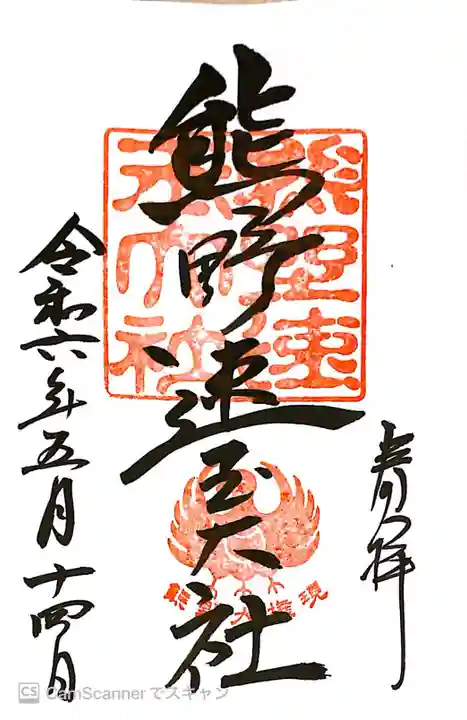 奉拝
熊野速玉大社
熊野速
玉大社
熊野大権現
令和六年五月十四日
CS CamScannerでスキャン